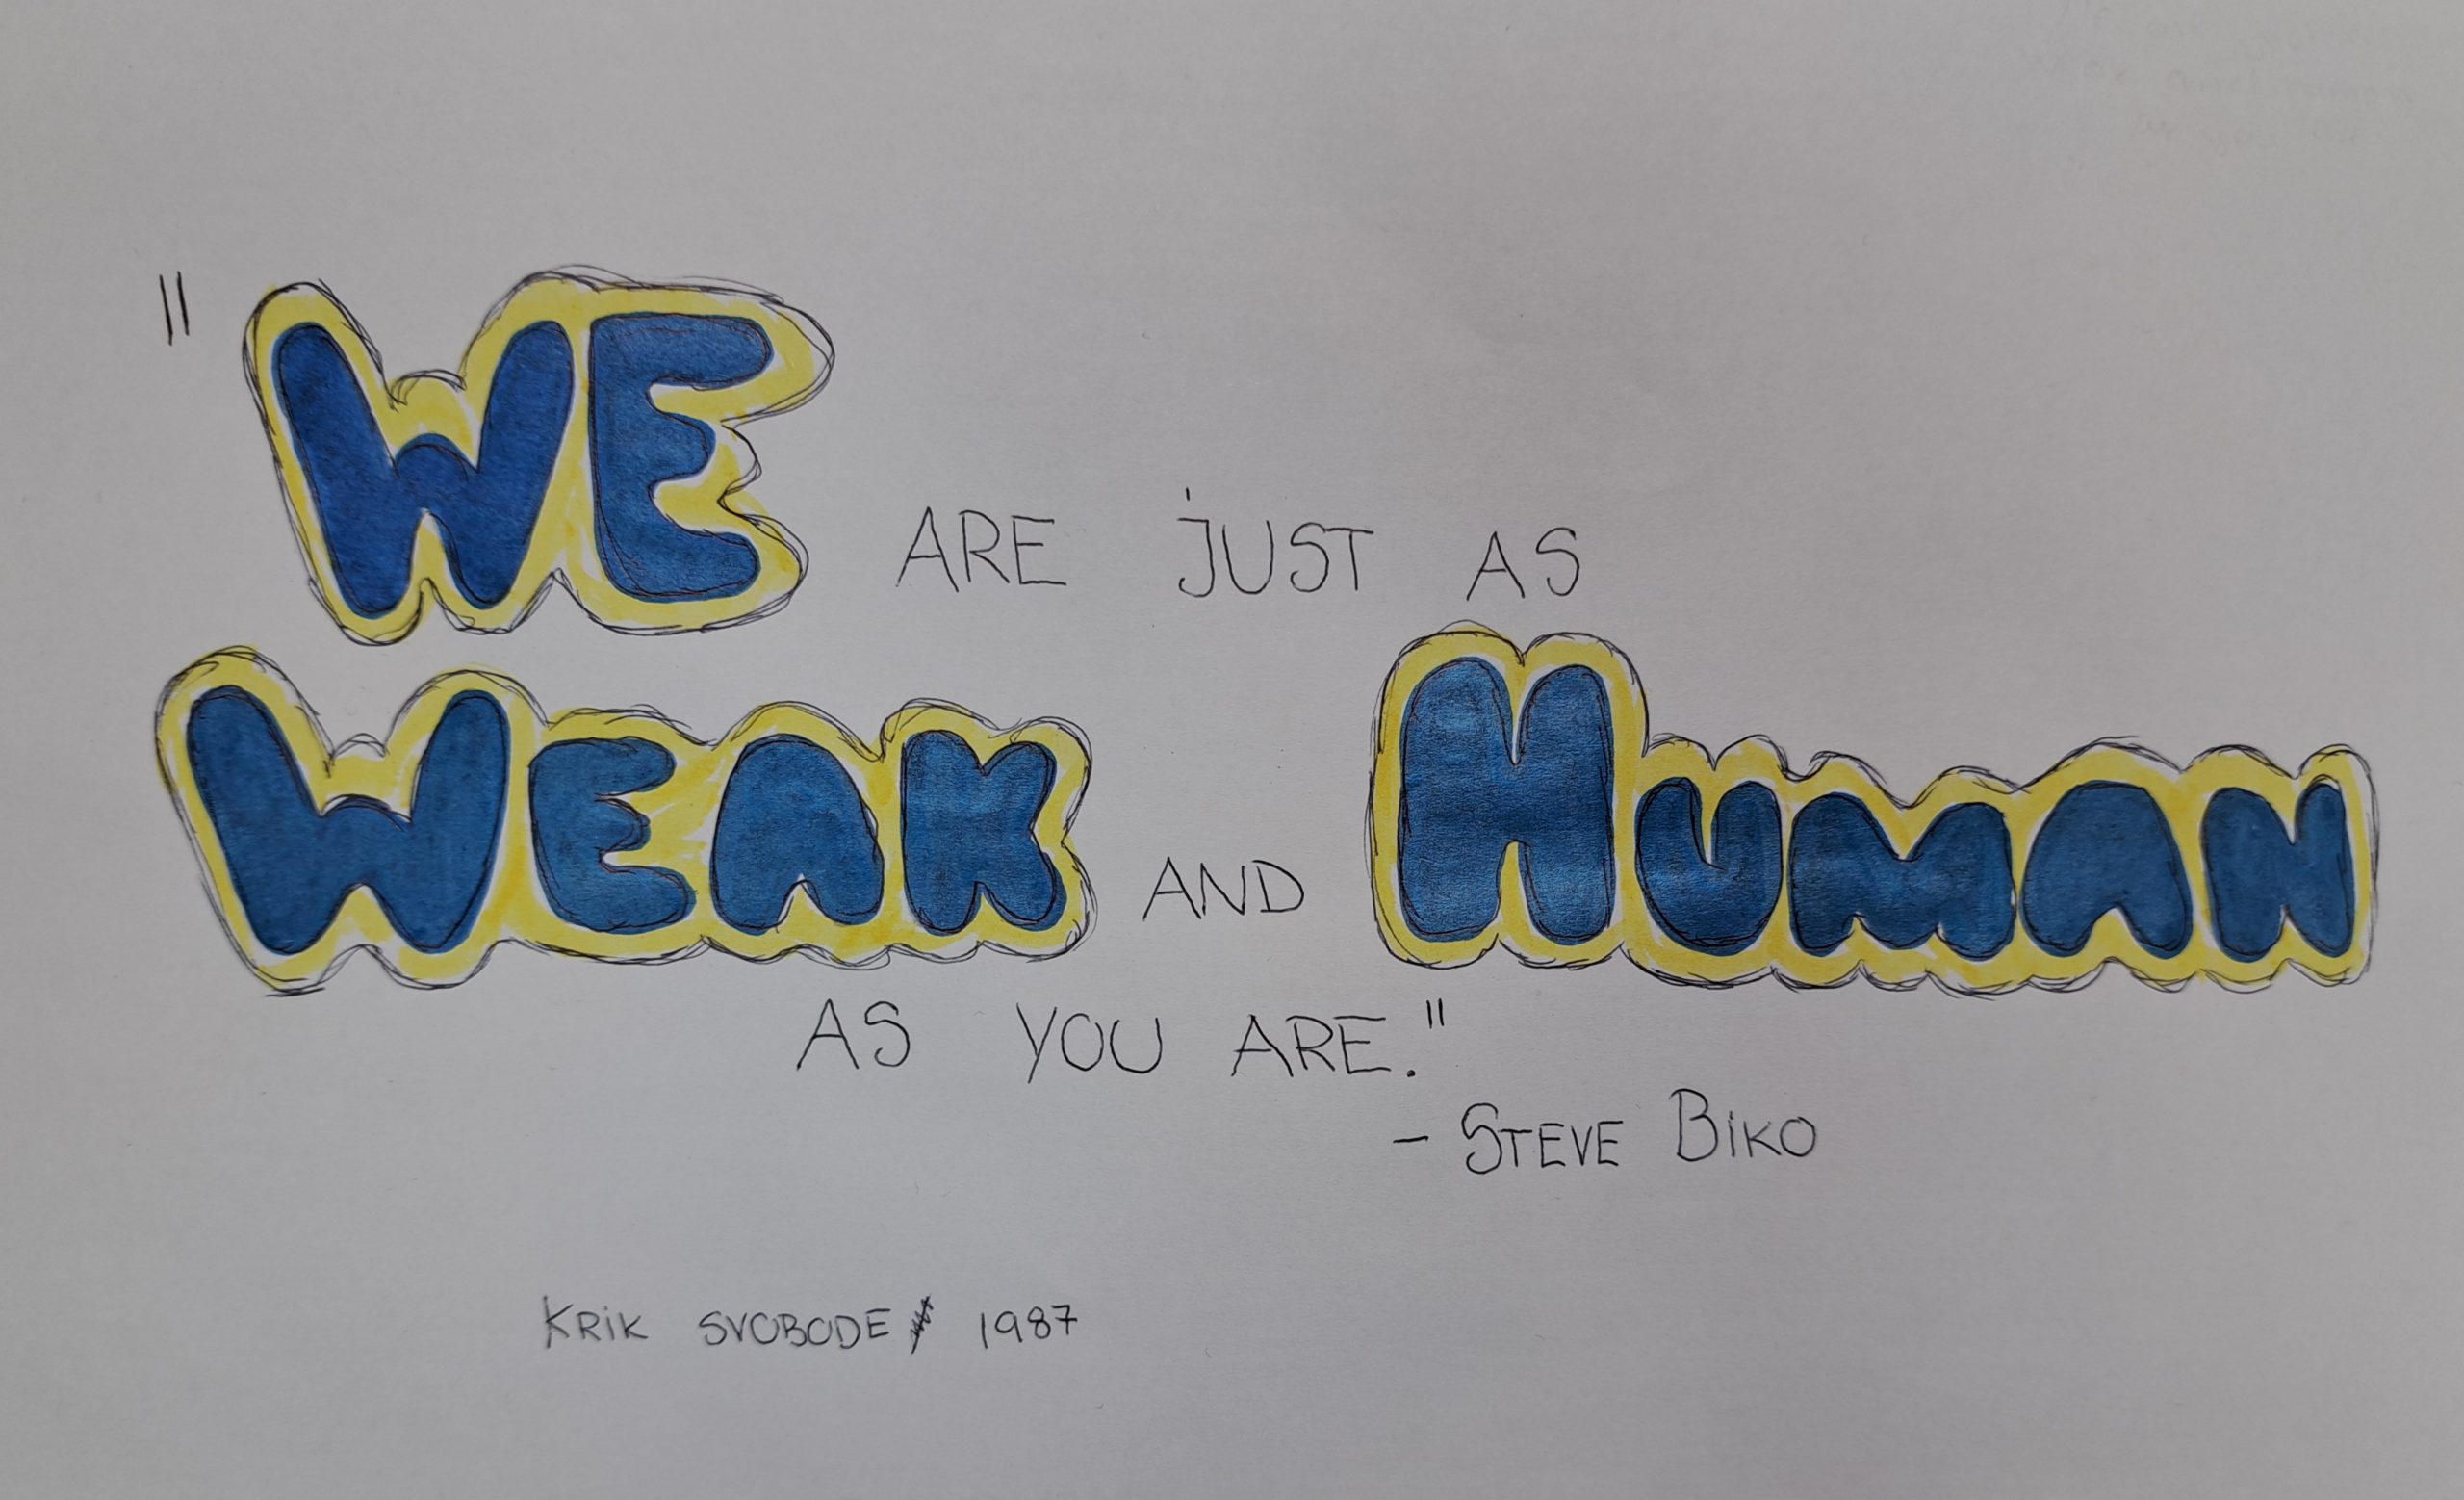 "WE ARE JUST AS
WEAK AND HUMAN
AS YOU ARE."
- STEVE BIKO
KRIK SVOBODE 1987